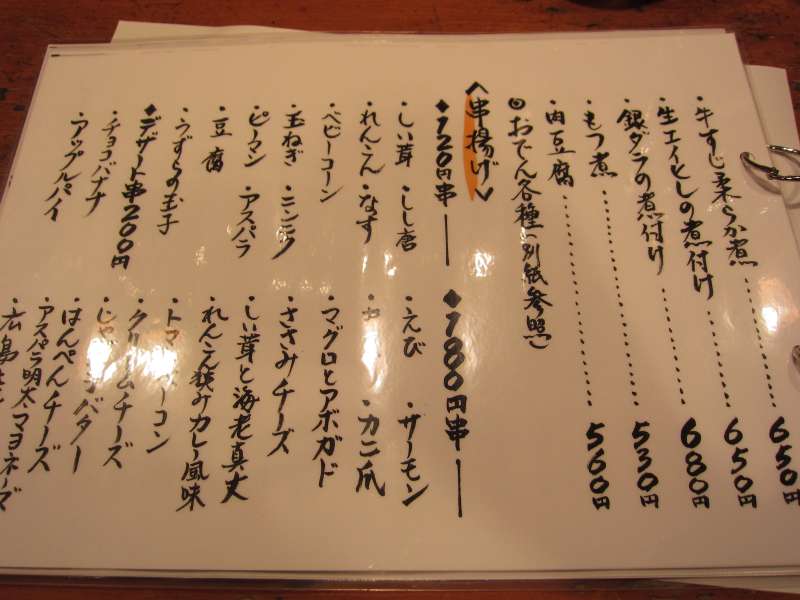 ・牛すじ柔らか煮 650円
・生エイヒレの煮付け 650円
・銀ダラの煮付け 680円
・もつ煮 530円
・肉豆腐 560円
◎おでん各種(別紙参照)
〈串揚げ〉
◆120円串
・しい茸 ・しし唐
・れんこん ・なす
・ベビーコーン
・玉ねぎ ・ニンニク
・ピーマン ・アスパラ
・豆腐
・うずらの玉子
◆デザート串200円
・チョコバナナ
・アップルパイ
◆180円串
・えび ・サーモン
・カニ爪
・マグロとアボガド
・ささみチーズ
・しい茸と海老真丈
・れんこん挟みカレー風味
・クリームチーズ
バター
・はんぺんチーズ
・アスパラ明太マヨネーズ
・広島